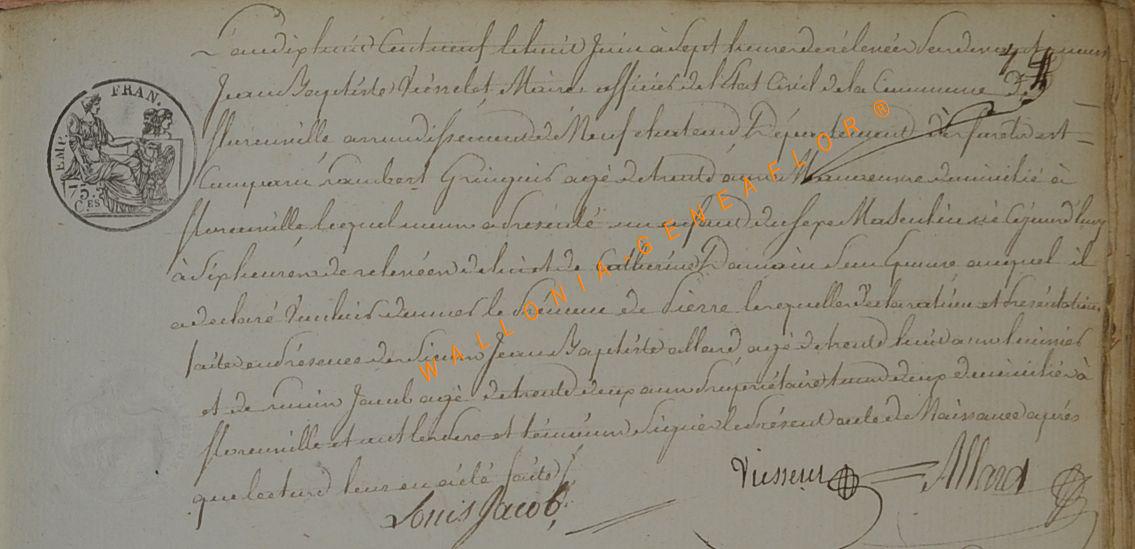 L'an dix huit Cent neuf le huit Juin à Sept heures de relevée Pardevant nous
Jean Baptiste Maire officier de l'Etat Civil de la Commune de
florenville arrondissement de Neufchateau Département des forets est
Comparu Lambert agé de trente ans Manoeuvre domicilié à
florenville lequel nous a présenté un enfant du Sexe Masculin né Cejourd'huy
à Six heures de relevée de lui et de Catherine Damain Son Epouse auquel il
a declaré Vouloir donner le Prenom de Pierre lesquelles déclaration et Présentation
faite en Présence de Jean Baptiste allard agé de trente huit ans
et de Jacob agé de trente deux ans Propriétaire tous deux domiciliés à
florenville et ont le Père et témoins Signés le Présent acte de Naissance après
que lecture leur en a été faite /
Louis Jacob
Allard
EMP. FRAN.
75
C.ES
WALLONIA-GENEAFLOR ®